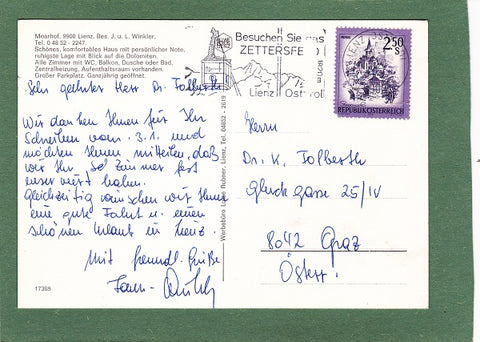 Moarhof, 9900 Lienz, Bes. J. u. L. Winkler.
Tel. 0 48 52 - 2247.
Schönes, komfortables Haus mit persönlicher Note,
ruhigste Lage mit Blick auf die Dolomiten.
Alle Zimmer mit WC, Balkon, Dusche oder Bad,
Zentralheizung, Aufenthaltsraum vorhanden.
Großer Parkplatz. Ganzjährig geöffnet.
Sehr geehrter Herr Dr. Tolberth
Wir danken Ihnen für Ihr
Schreiben vom 3.1. und
möchten Ihnen mitteilen, daß
wir Ihr Zimmer fest
reserviert haben.
Gleichzeitig wünschen wir Ihnen
eine gute Fahrt u. einen
schönen Urlaub in Lienz.
Mit freundl. Grüße
Fam.
17368
Werbebüro Ruhner, Lienz, Tel. 04852 - 2619
Besuchen Sie das
ZETTERSFE
Lienz Osttirol
2.50
S
REPUBLIK ÖSTERREICH
Herrn
Dr. K. Tolberth
Gluckgasse 25/IV
8042 Graz
Österr.